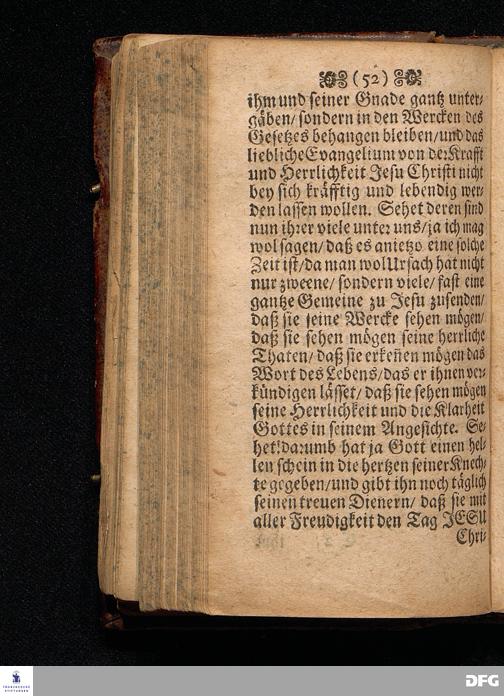 (52)
ihm und seiner Gnade gantz unter-
gäben/ sondern in den Wercken des
Gesetzes behangen bleiben/ und das
liebliche Evangelium von der Krafft
und Herrlichkeit Jesu Christi nicht
bey sich kräfftig und lebendig wer-
den lassen wollen. Sehet deren sind
nun ihrer viele unter uns/ ja ich mag
wol sagen/ daß es anietzo eine solche
Zeit ist/ da man wol Ursach hat nicht
nur zweene/ sondern viele/ fast eine
gantze Gemeine zu Jesu zusenden/
daß sie seine Wercke sehen mögen/
daß sie sehen mögen seine herrliche
Thaten/ daß sie erkeñen mögen das
Wort des Lebens/ das er ihnen ver-
kündigen lässet/ daß sie sehen mögen
seine Herrlichkeit und die Klarheit
Gottes in seinem Angesichte. Se-
het! darumb hat ja Gott einen hel-
len schein in die hertzen seiner Knech-
te gegeben/ und gibt ihn noch täglich
seinen treuen Dienern/ daß sie mit
aller Freudigkeit den Tag JESU
Chri-
FRANCKESCHE
STIFTUNGEN
DFG